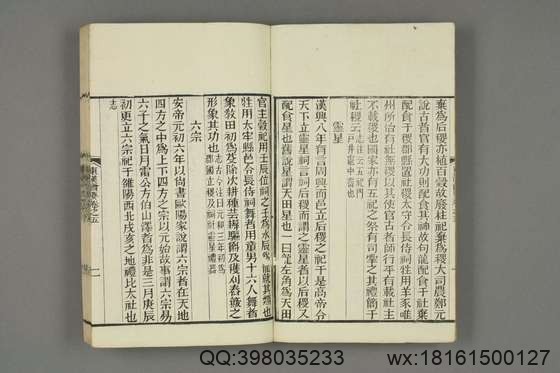 棄爲后稷亦植百穀故廢柱祀棄爲稷大司農鄭元
說古者官有大功則配食其神故句龍配食于社棄
配食于稷郡縣置社稷太守令長侍祠牲用羊豕唯
州所治有社無稷以其使官古者師行平有載社主
不載稷也國家亦有五祀之祭有司掌之其禮簡于
社稷云
靈星
漢興八年有言周興而邑立后稷之祀于是高帝令
天下立靈星祠言祠后稷而謂之靈星者以后稷又
配食星也舊說星謂天田星也一曰龍左角爲天田
官主穀祀用壬辰位祠之壬爲水辰爲龍就其類也
牲用太牢縣邑令長侍祠舞者用童男十六人舞者
象敎田初爲芟除次耕種芸耨驅爵及穫刈舂簸之
形象其功也
六宗
安帝元初六年以尙書歐陽家說謂六宗者在天地
四方之中爲上下四方之宗以元始故事謂六宗易
六子之氣日月雷公風伯山澤者爲非是三月庚辰
初更立六宗祀于雒陽西北戌亥之地禮比太社也
志
QQ:398035233
wx:18161500127